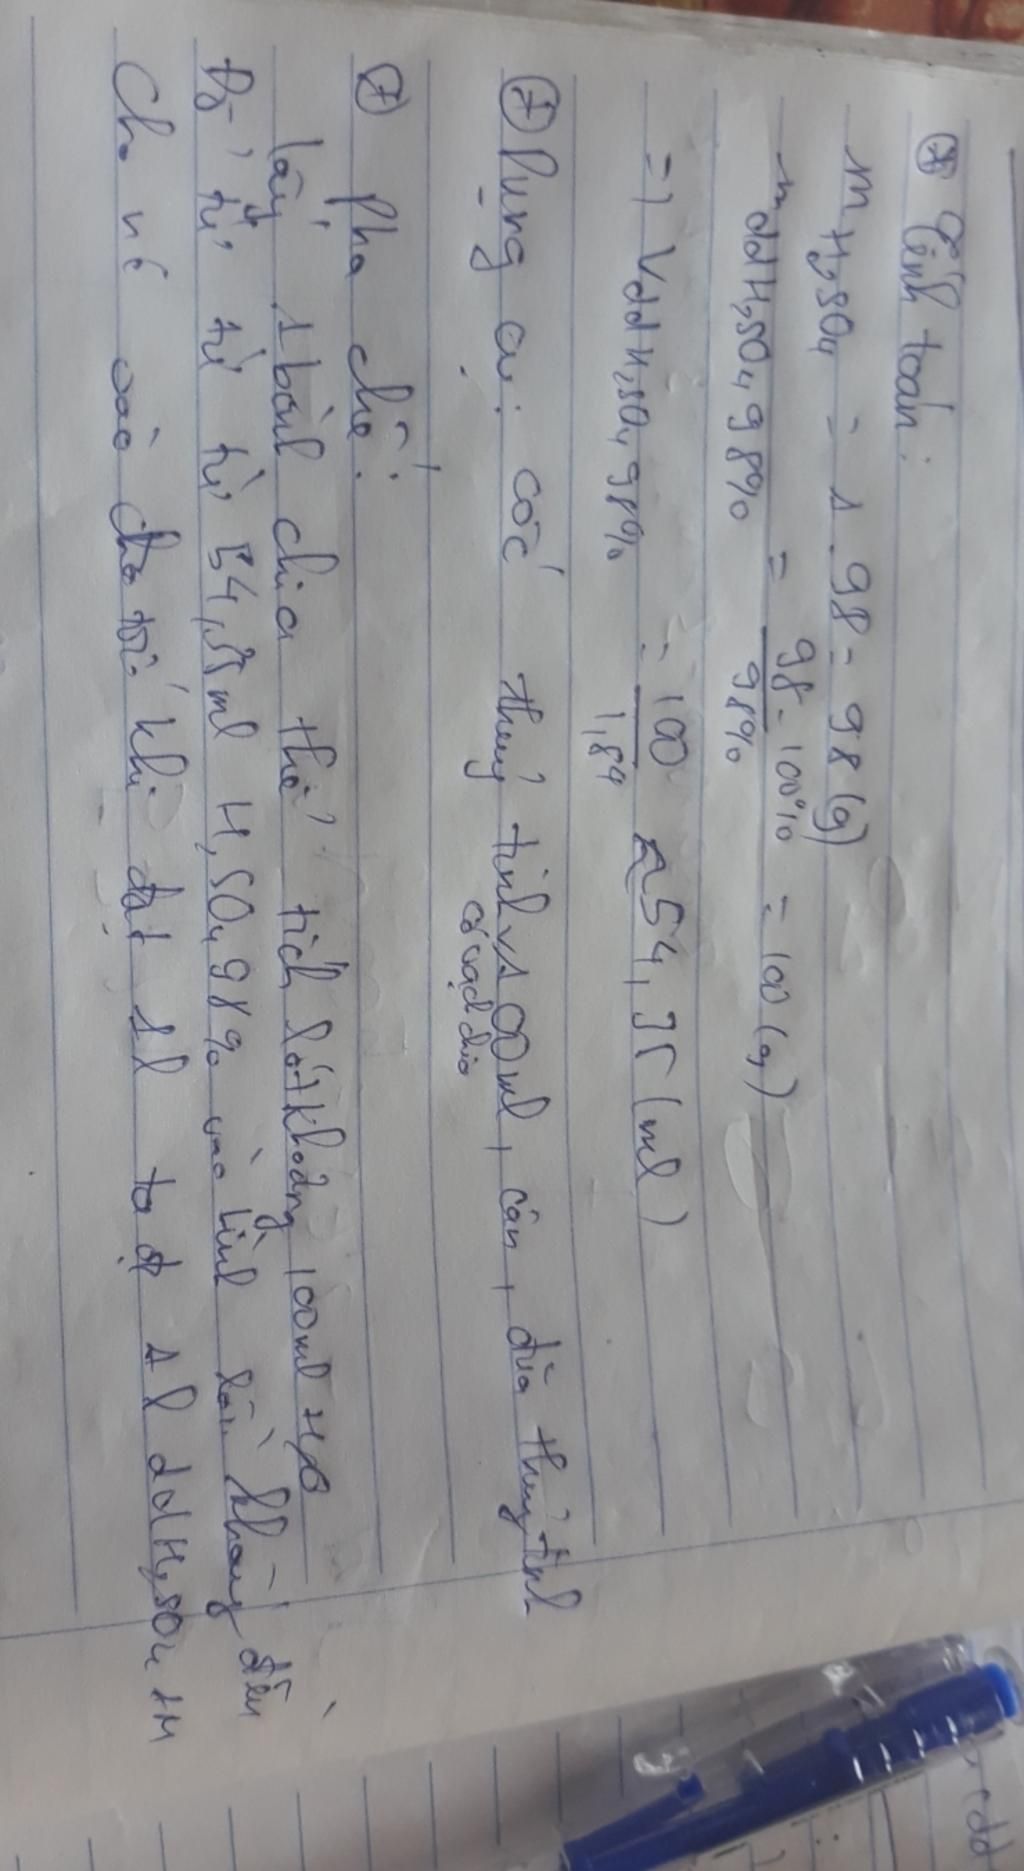 ⊛ Tính toán:
m H₂SO₄ = 1.98 = 98 (g)
m ddH₂SO₄ 98% = 98.100% / 98% = 100 (g)
=> Vdd H₂SO₄ 98% = 100 / 1,84 ≈ 54,35 (ml)
⊕ Dụng cụ: cốc thuỷ tinh 100ml, cân, đũa thuỷ tinh
có vạch chia
⊕ pha chế:
lấy 1 bình chia thể tích lớt khoảng 100ml H₂O
Đổ từ từ 54,35ml H₂SO₄ 98% vào bình lớn khoáng đến
Cho nc vào cho tới khi đạt 1l tạ đ 1l ddH₂SO₄ 1M
dd